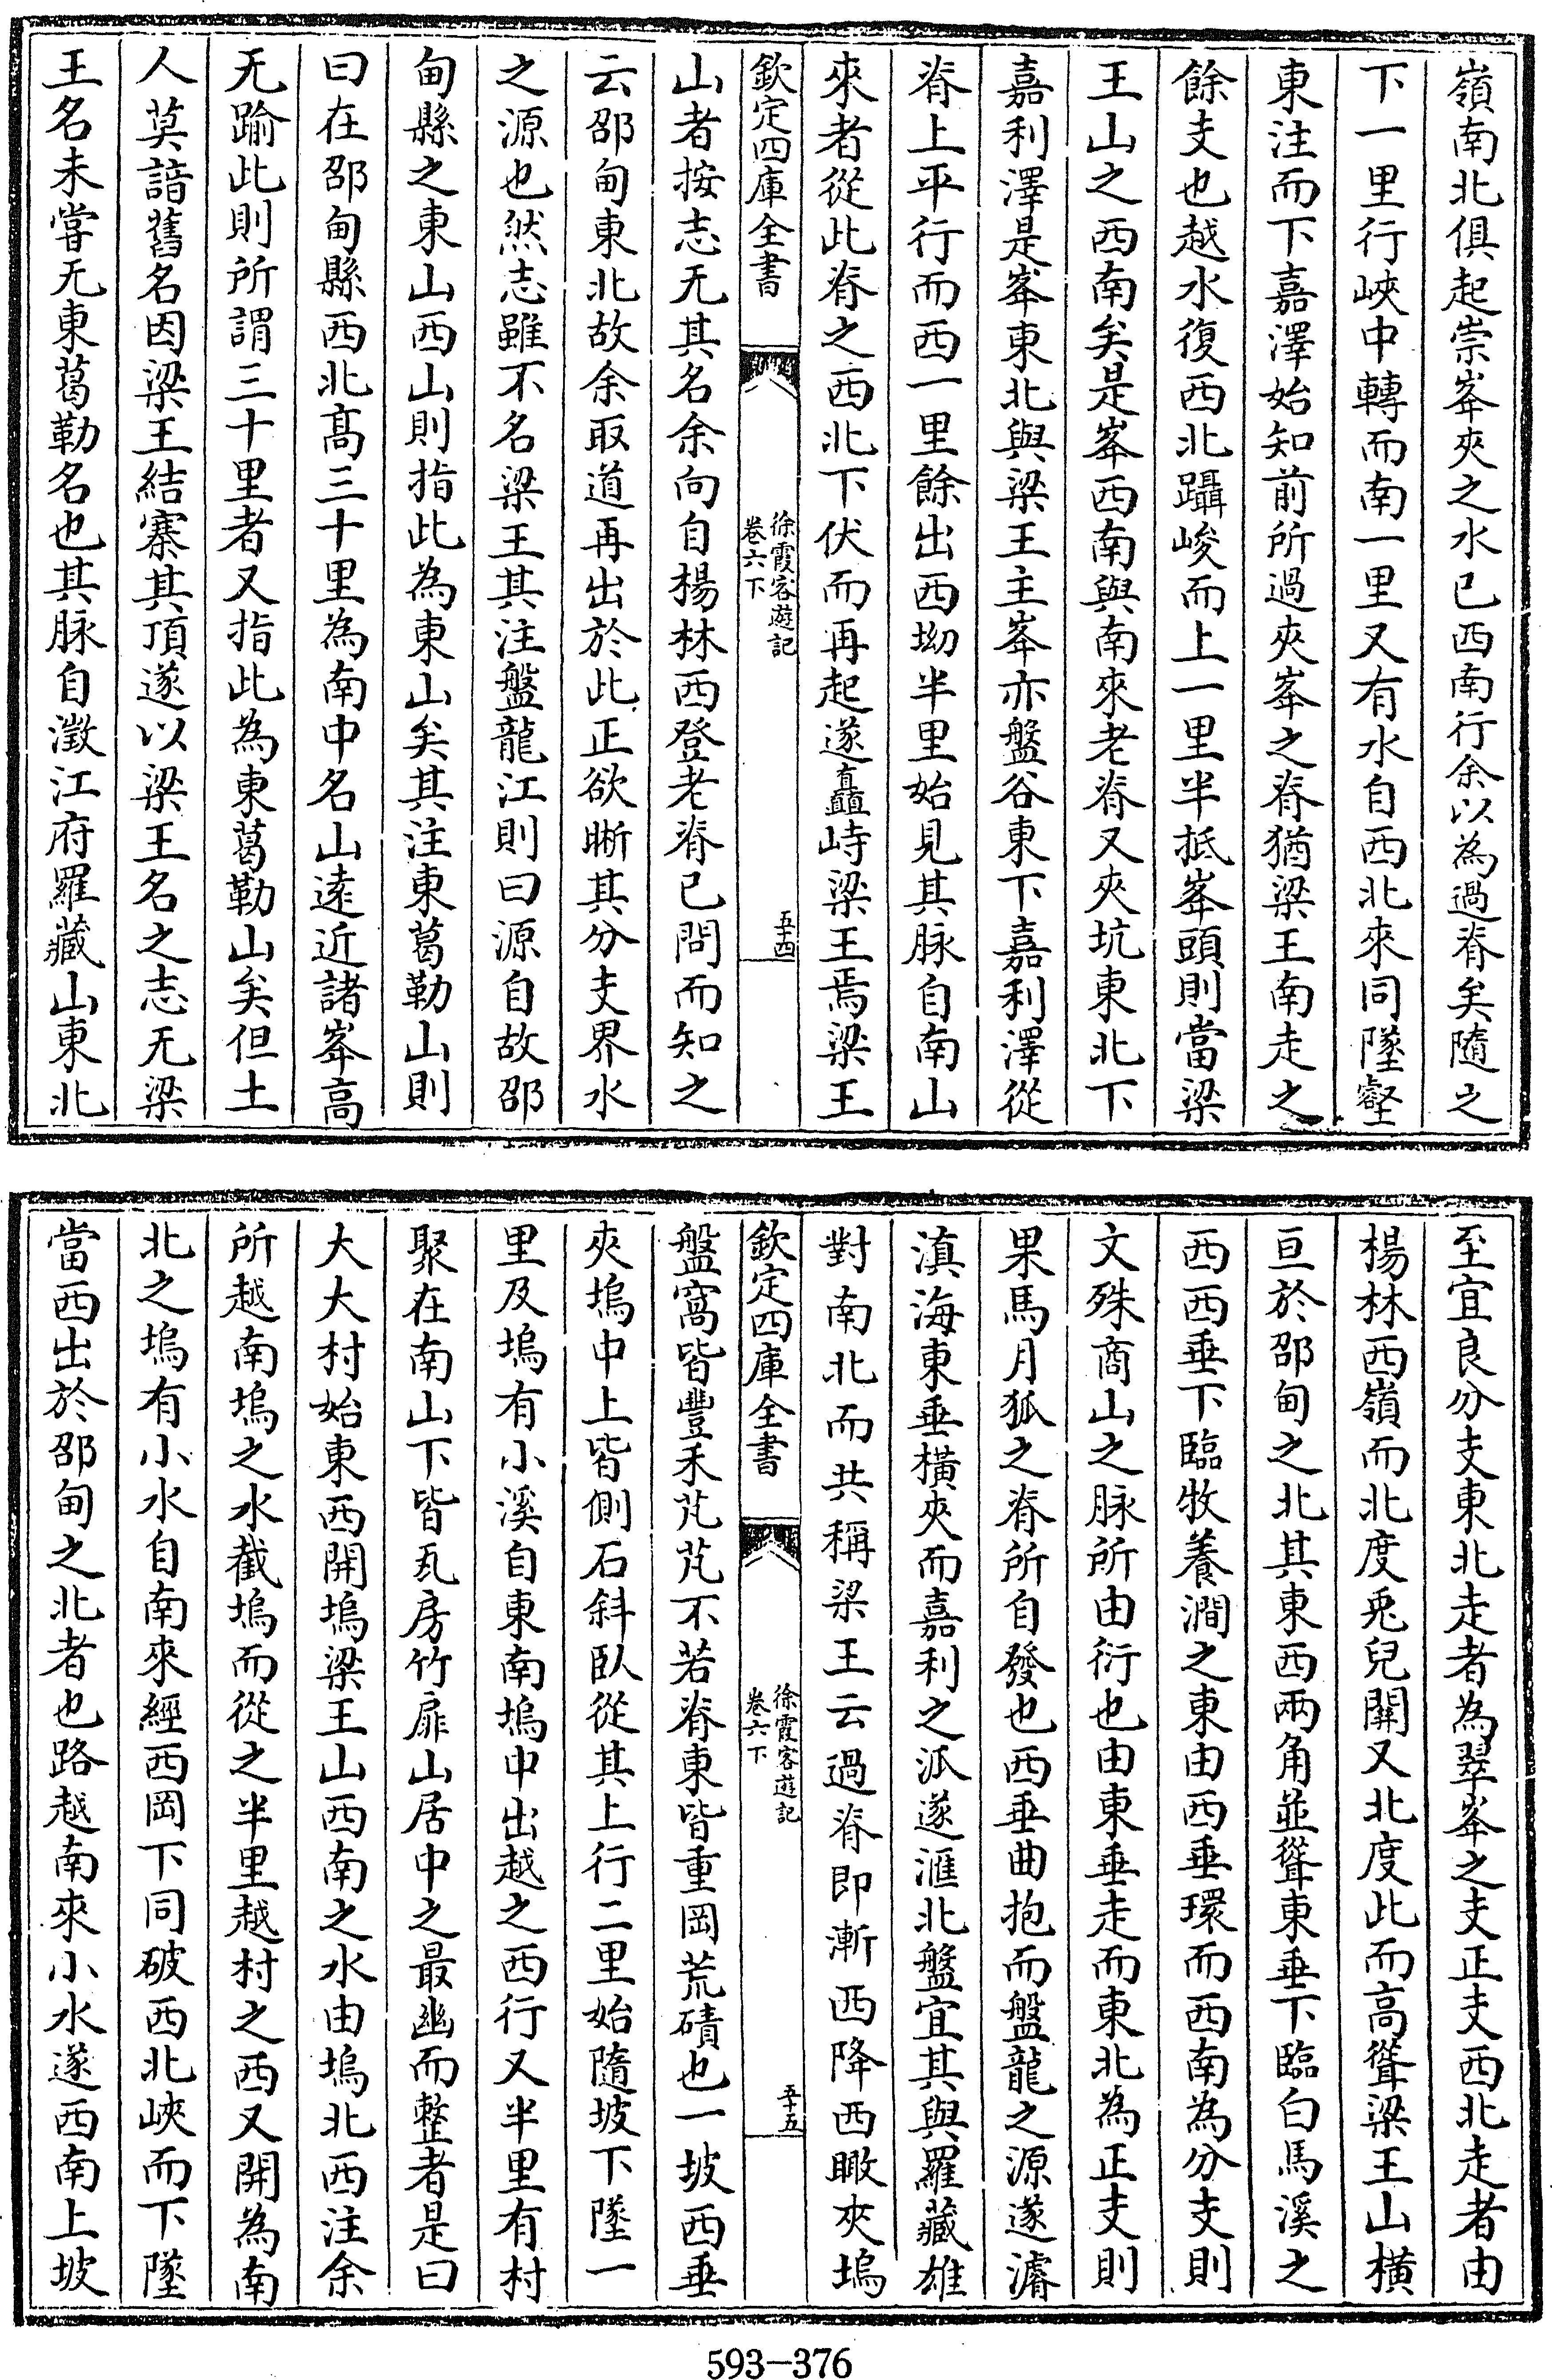 嶺南北俱起崇峯夾之水已西南行余以為過脊矣隨之
下一里行峽中轉而南一里又有水自西北來同墜壑
東注而下嘉澤始知前所過夾峯之脊猶梁王南走之
餘支也越水復西北躡峻而上一里半抵峯頭則當梁
王山之西南矣是峯西南與南來老脊又夾坑東北下
嘉利澤是峯東北與梁王主峯亦盤谷東下嘉利澤從
脊上平行而西一里餘出西坳半里始見其脉自南山
來者從此脊之西北下伏而再起遂矗峙梁王焉梁王
欽定四庫全書
徐霞客遊記
卷六下
五十四
山者按志无其名余向自楊林西登老脊已問而知之
云邵甸東北故余取道再出於此正欲晰其分支界水
之源也然志雖不名梁王其注盤龍江則曰源自故邵
甸縣之東山西山則指此為東山矣其注東葛勒山則
曰在邵甸縣西北髙三十里為南中名山逺近諸峯高
无踰此則所謂三十里者又指此為東葛勒山矣但土
人莫諳舊名因梁王結寨其頂遂以梁王名之志无梁
王名未嘗无東葛勒名也其脉自澂江府羅藏山東北
至宜良分支東北走者為翠峯之支正支西北走者由
楊林西嶺而北度兎兒關又北度此而高聳梁王山横
亘於邵甸之北其東西兩角並聳東垂下臨白馬溪之
西西垂下臨牧養澗之東由西垂環而西南為分支則
文殊商山之脉所由衍也由東垂走而東北為正支則
果馬月狐之脊所自發也西垂曲抱而盤龍之源遂濬
滇海東垂横夾而嘉利之派遂滙北盤宜其與羅藏雄
對南北而共稱梁王云過脊即漸西降西瞰夾塢
欽定四庫全書
徐霞客遊記
卷六下
五十五
盤窩皆豐禾芃芃不若脊東皆重岡荒磧也一坡西垂
夾塢中上皆側石斜臥從其上行二里始隨坡下墜一
里及塢有小溪自東南塢中出越之西行又半里有村
聚在南山下皆瓦房竹扉山居中之最幽而整者是曰
大大村始東西開塢梁王山西南之水由塢北西注余
所越南塢之水截塢而從之半里越村之西又開為南
北之塢有小水自南來經西岡下同破西北峽而下墜
當西出於邵甸之北者也路越南來小水遂西南上坡
593-376